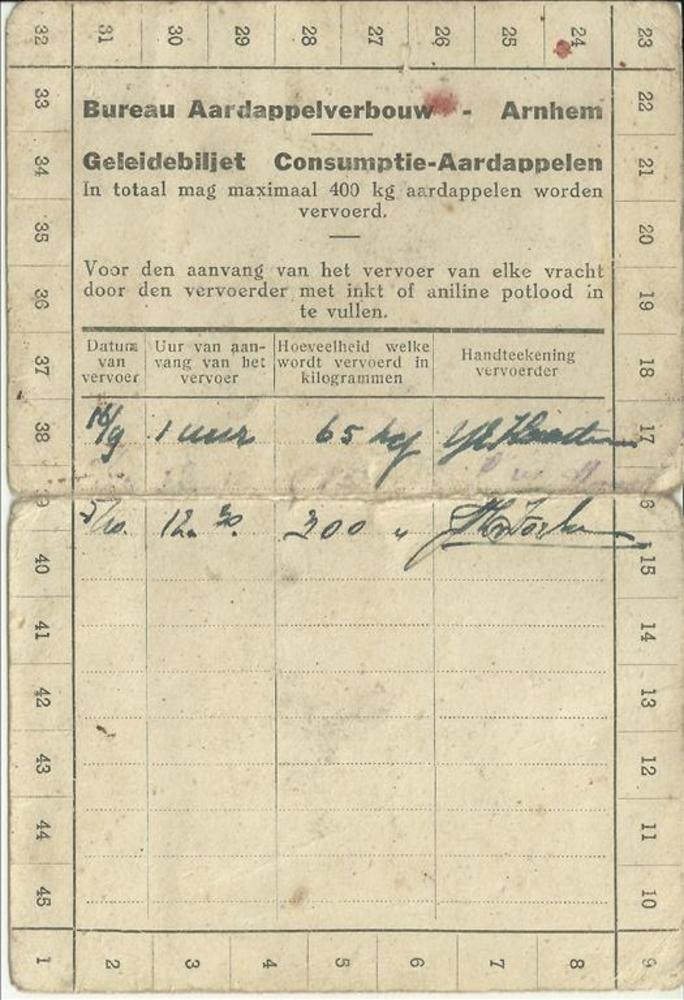 32 31 30 29 28 27 26 25 24 23
33 22
Bureau Aardappelverbouw - Arnhem
34 21
Geleidebiljet Consumptie-Aardappelen
In totaal mag maximaal 400 kg aardappelen worden
vervoerd.
35 20
Voor den aanvang van het vervoer van elke vracht
door den vervoerder met inkt of aniline potlood in
te vullen.
36 19
Datum van vervoer
Uur van aan-
vang van het
vervoer
Hoeveelheid welke
wordt vervoerd in
kilogrammen
Handteekening
vervoerder
37 18
38 16/9 1 uur 65 kg 17
9 6
5/10. 12.30. 300 "
40 15
41 14
42 13
43 12
44 11
45 10
1 2 3 4 5 6 7 8 9